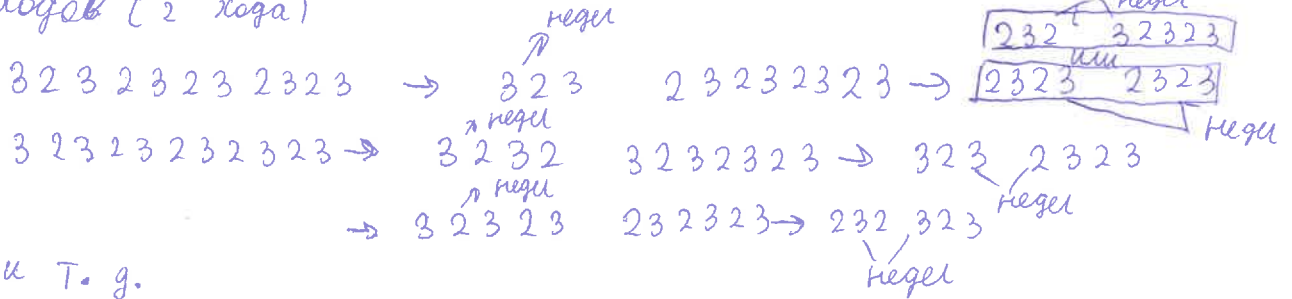 ходов (2 хода)
недел
недел
232 32323
или
3232323 2323 → 323 23232323 → 2323 2323
недел
недел
3 23232 32323 → 3232 3232323 → 323 2323
недел
недел
→ 32323 232323 → 232 323
недел
и т. д.